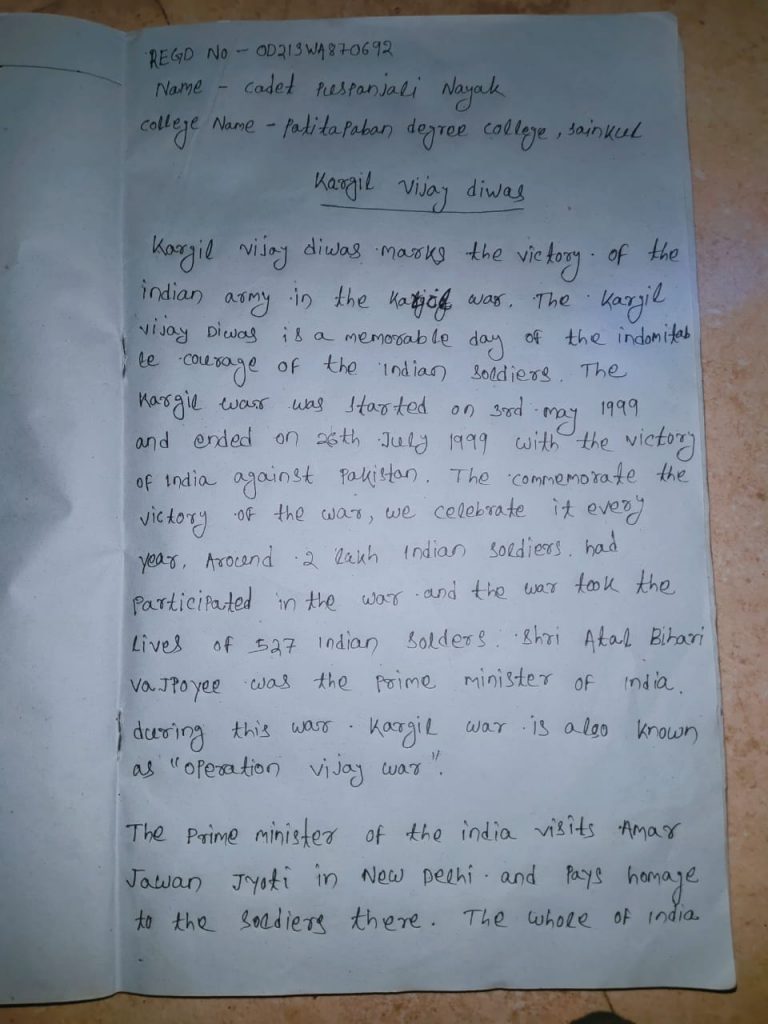 REGD No - OD21SWA870692
Name - Cadet Puspanjali Nayak
College Name - Patitapaban degree college, sainkul
Kargil vijay diwas
Kargil vijay diwas marks the victory of the
indian army in the Kargil war. The Kargil
vijay Diwas is a memorable day of the indomitab
le courage of the Indian soldiers. The
Kargil war was started on 3rd may 1999
and ended on 26th July 1999 with the victory
of India against Pakistan. The commemorate the
victory of the war, we celebrate it every
year. Around 2 lakh Indian soldiers had
participated in the war and the war took the
lives of 527 indian solders. Shri Atal Bihari
VaJPoyee was the prime minister of india.
during this war. Kargil war is also known
as "operation vijay war".
The prime minister of the india visits Amar
Jawan Jyoti in New Delhi and pays homage
to the soldiers there. The whole of india